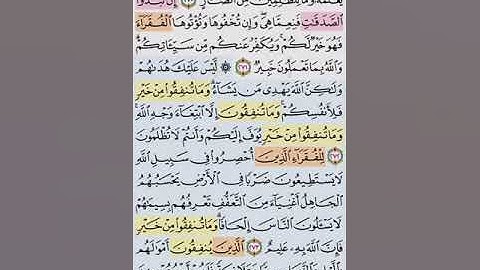 يَعْلَمُهُۥ وَمَا لِلظَّٰلِمِينَ مِنْ أَنصَارٍ ٢٧٠ إِن تُبْدُوا۟
ٱلصَّدَقَٰتِ فَنِعِمَّا هِىَ وَإِن تُخْفُوهَا وَتُؤْتُوهَا ٱلْفُقَرَآءَ
فَهُوَ خَيْرٌ لَّكُمْ وَيُكَفِّرُ عَنكُم مِّن سَيِّـَٔاتِكُمْ
وَٱللَّهُ بِمَا تَعْمَلُونَ خَبِيرٌ ٢٧١ ۞ لَّيْسَ عَلَيْكَ هُدَىٰهُمْ
وَلَٰكِنَّ ٱللَّهَ يَهْدِى مَن يَشَآءُ وَمَا تُنفِقُوا۟ مِنْ خَيْرٍ
فَلِأَنفُسِكُمْ وَمَا تُنفِقُونَ إِلَّا ٱبْتِغَآءَ وَجْهِ ٱللَّهِ
وَمَا تُنفِقُوا۟ مِنْ خَيْرٍ يُوَفَّ إِلَيْكُمْ وَأَنتُمْ لَا تُظْلَمُونَ
٢٧٢ لِلْفُقَرَآءِ ٱلَّذِينَ أُحْصِرُوا۟ فِى سَبِيلِ ٱللَّهِ
لَا يَسْتَطِيعُونَ ضَرْبًا فِى ٱلْأَرْضِ يَحْسَبُهُمُ
ٱلْجَاهِلُ أَغْنِيَآءَ مِنَ ٱلتَّعَفُّفِ تَعْرِفُهُم بِسِيمَٰهُمْ
لَا يَسْـَٔلُونَ ٱلنَّاسَ إِلْحَافًا وَمَا تُنفِقُوا۟ مِنْ خَيْرٍ
فَإِنَّ ٱللَّهَ بِهِۦ عَلِيمٌ ٢٧٣ ٱلَّذِينَ يُنفِقُونَ أَمْوَٰلَهُم